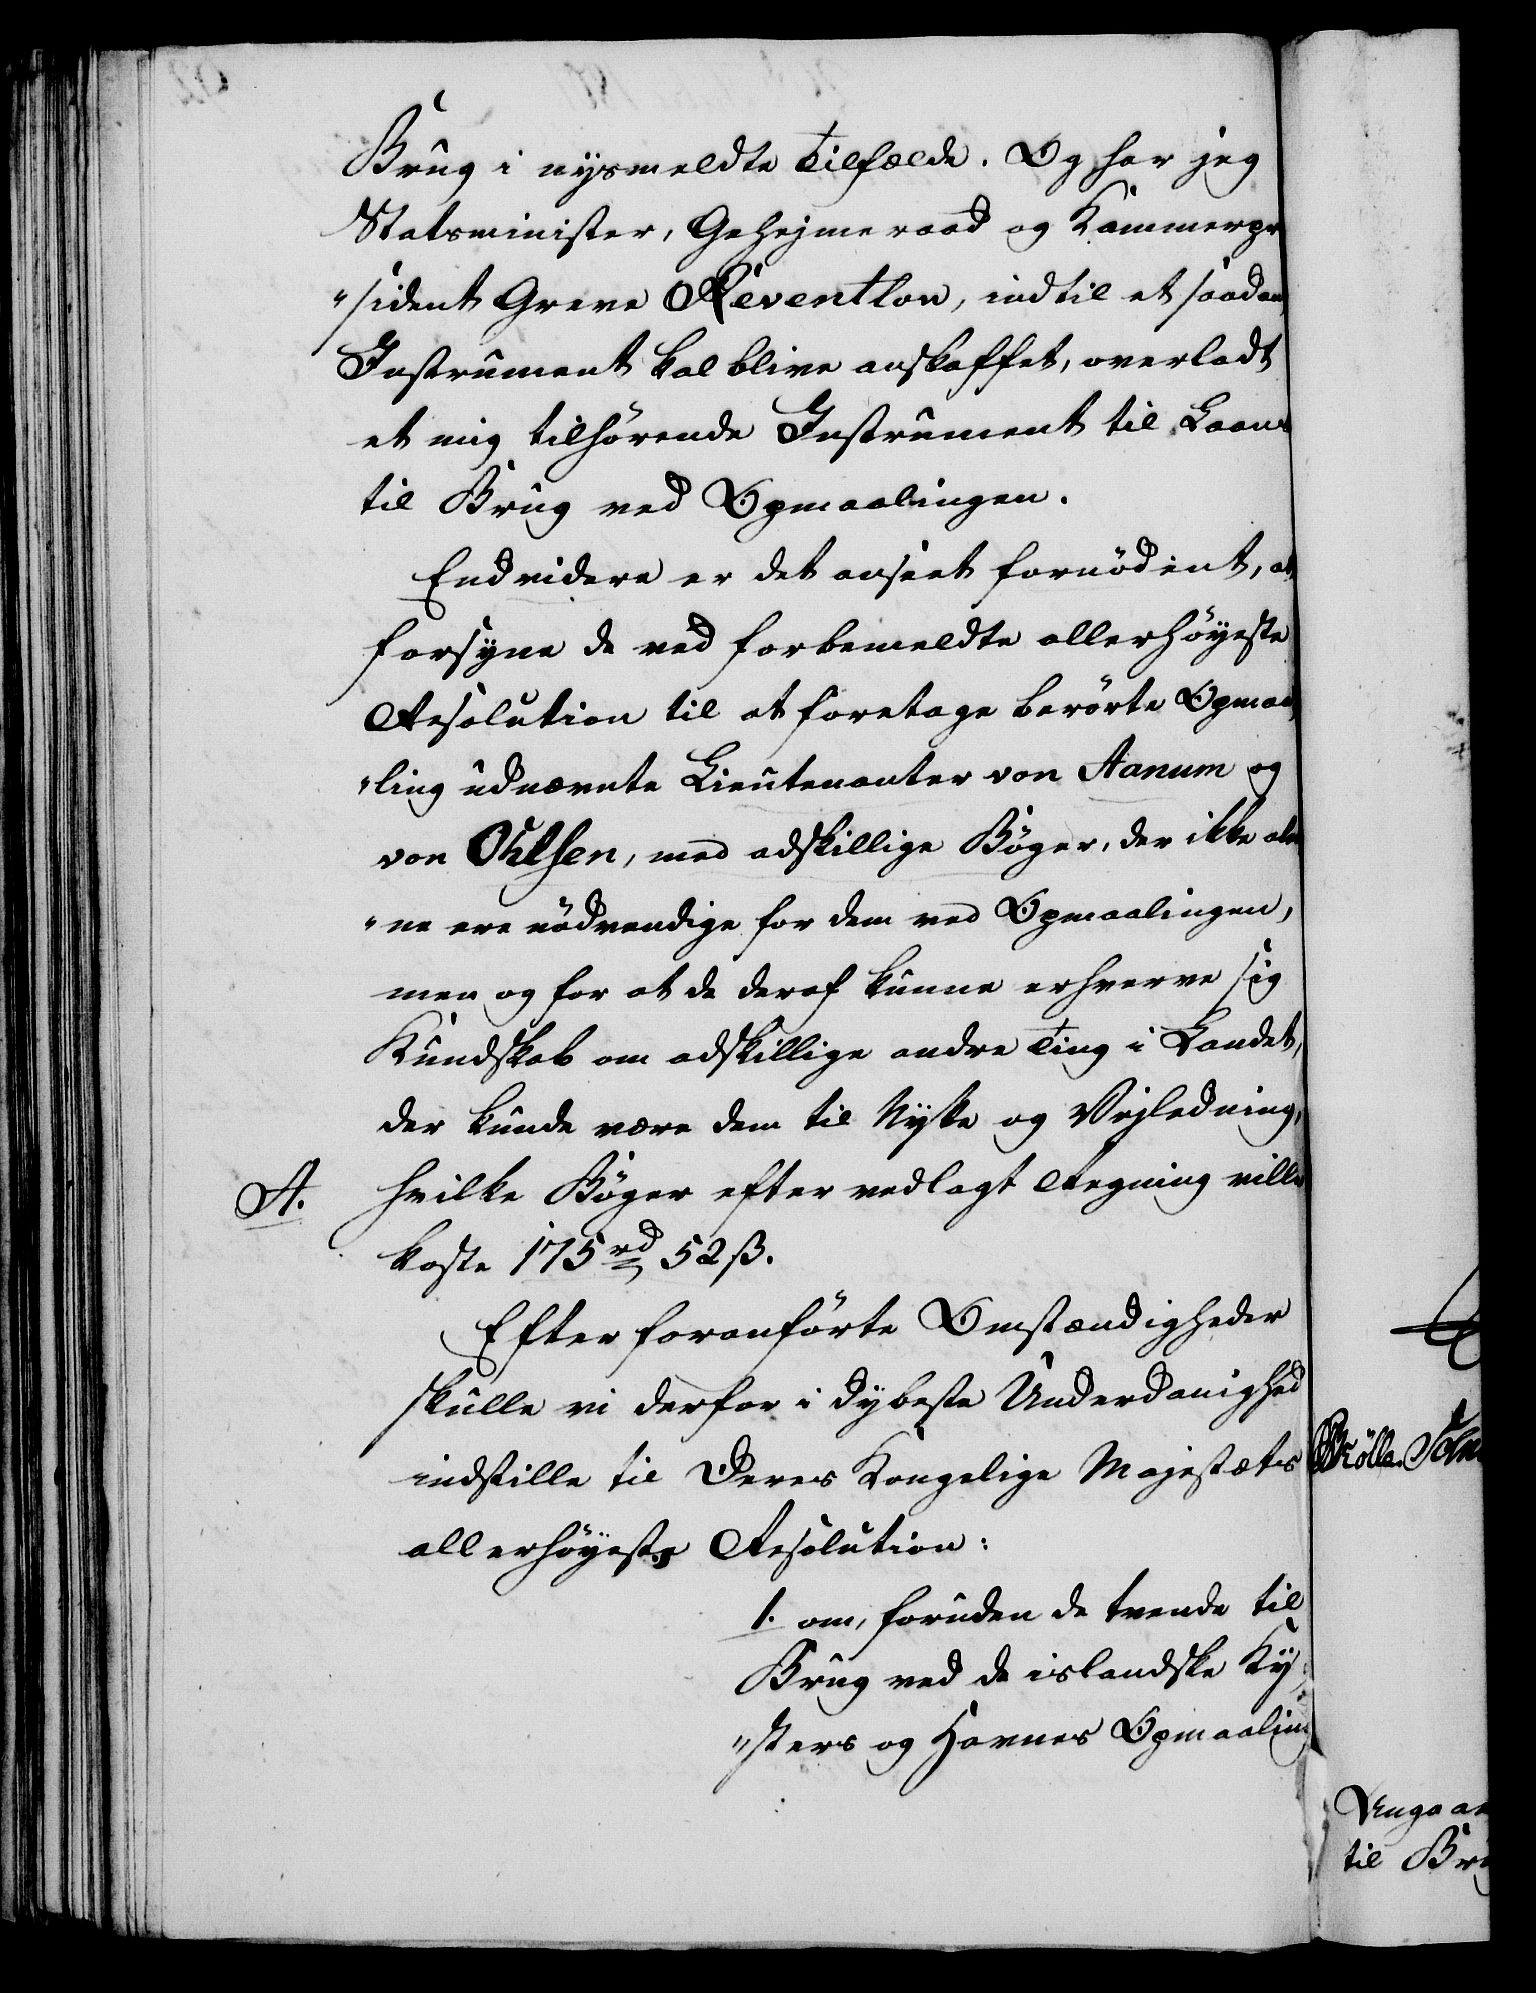 Brug i nysmeldte Tilfælde. Og har jeg
Statsminister, Gehejmeraad og Kammerpr
"sident Greve Reventlow, indtil et saadan
Instrument kal blive anskaffet, overladt
et mig tilhørende Instrument til Laans
til Brug ved Opmaalingen.
Endvidere er det anseet fornødent, at
forsyne de ved forbemeldte allerhøyeste
Resolution til at foretage berørte Opmaa
"ling udnævnte Lieutenanter von Aanum og
von Ohlsen, med adskillige Bøger, der ikke ale
"ne ere nødvendige for dem ved Opmaalingen,
men og for at de deraf kunne erhverve sig
Kundskab om adskillige andre Ting i Landet,
der kunde være dem til Nytte og Vejledning,
A. hvilke Bøger efter vedlagt Regning ville
koste 175 rd 52 ß.
Efter foranførte Omstændigheder
skulle vi derfor i dybeste Underdanighed
indstille til Deres Kongelige Majestæts
allerhøyeste Resolution:
1. om, foruden de tvende til
Brug ved de islandske Ky
"sters og Havnes Opmaalin
til